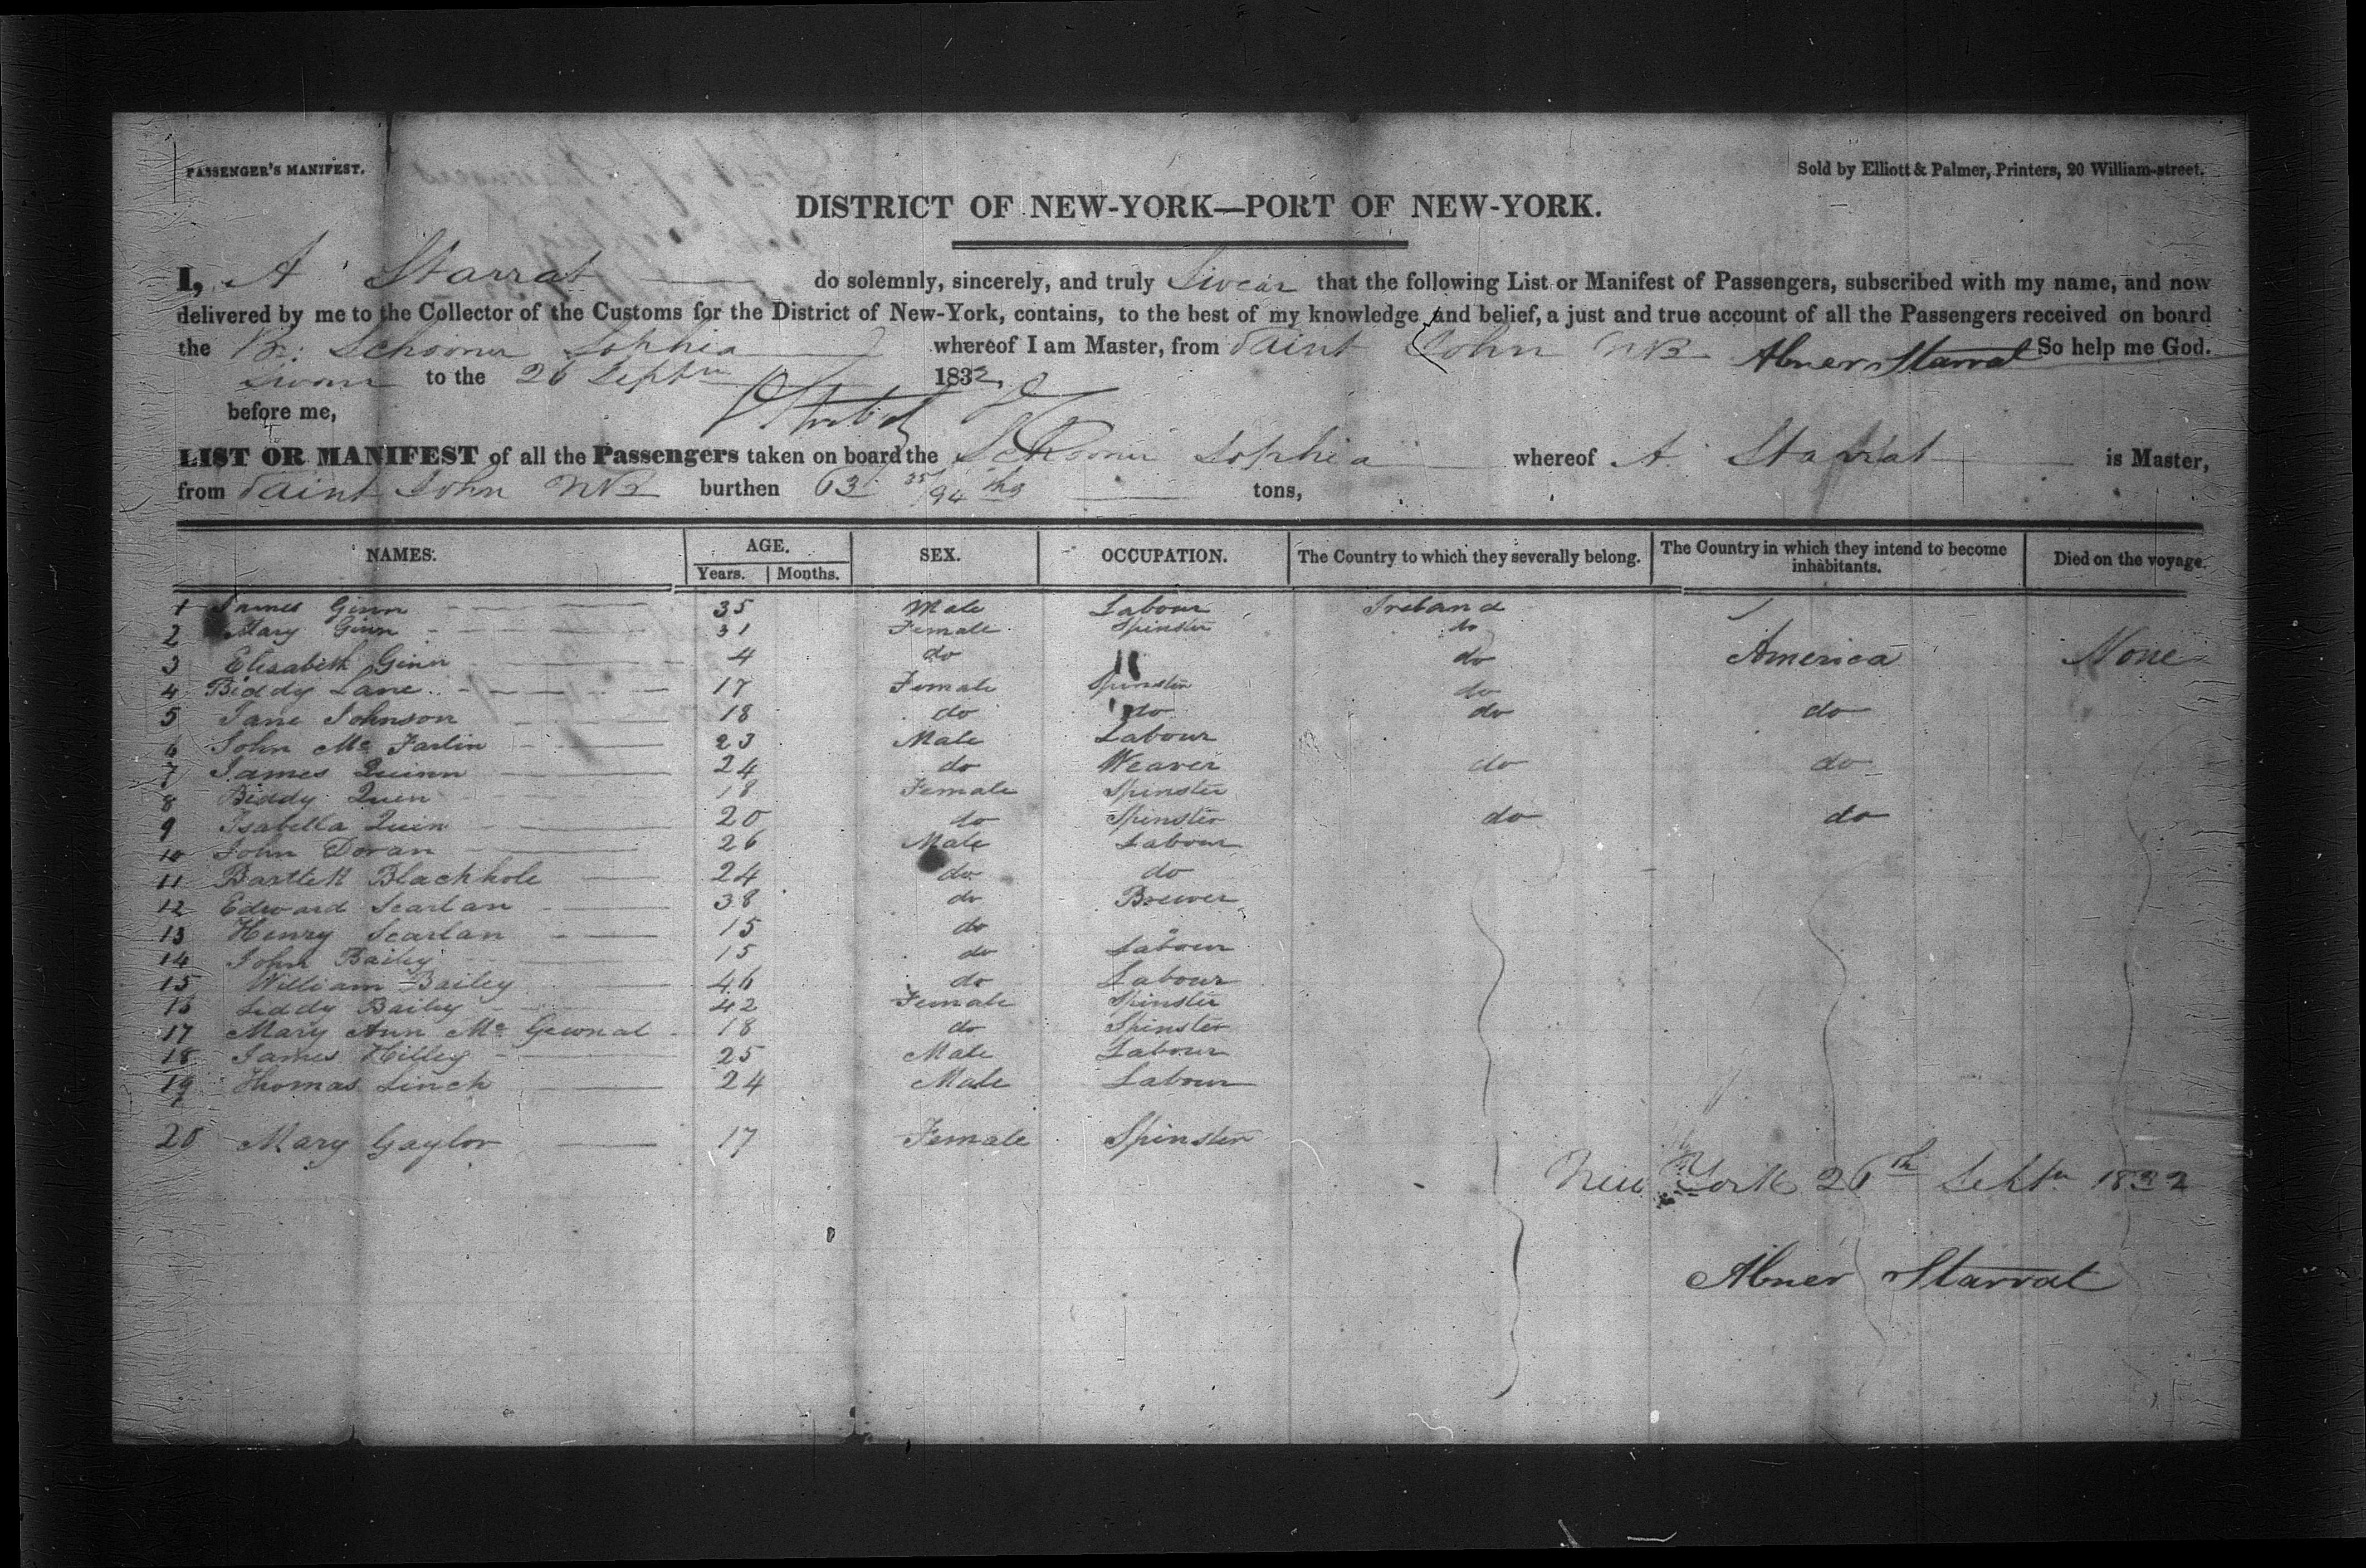 PASSENGER'S MANIFEST.
Sold by Elliott & Palmer, Printers, 20 William-street.
DISTRICT OF NEW-YORK—PORT OF NEW-YORK.
I, A Starrat do solemnly, sincerely, and truly Swear that the following List or Manifest of Passengers, subscribed with my name, and now
delivered by me to the Collector of the Customs for the District of New-York, contains, to the best of my knowledge and belief, a just and true account of all the Passengers received on board
the Br. Schooner Sophia whereof I am Master, from Saint John NB Abner Starrat So help me God.
Sworn to the 26 Septr 1832
before me,
LIST OR MANIFEST of all the Passengers taken on board the Schooner Sophia whereof A. Starrat is Master,
from Saint John NB burthen 63 35/94ths tons,
NAMES. AGE. SEX. OCCUPATION. The Country to which they severally belong. The Country in which they intend to become inhabitants. Died on the voyage.
Years. Months.
1 James Ginn 35 Male Labour Ireland
2 Mary Ginn 31 Female Spinster do
3 Elisabeth Ginn 4 do do America None
4 Biddy Lane 17 Female Spinster do
5 Jane Johnson 18 do do do do
6 John Mc Farlin 23 Male Labour
7 James Quinn 24 do Weaver do do
8 Biddy Quin 18 Female Spinster
9 Isabella Quin 20 do Spinster do do
10 John Doran 26 Male Labour
11 Bartlett Blackhole 24 do do
12 Edward Scarlan 38 do Brewer
13 Henry Scarlan 15 do
14 John Bailey 15 do Labour
15 William Bailey 46 do Labour
15 Liddy Bailey 42 Female Spinster
17 Mary Ann Mc Gewnal 18 do Spinster
18 James Hilley 25 Male Labour
19 Thomas Linch 24 Male Labour
20 Mary Gaylor 17 Female Spinster
New York 26th Septr 1832
Abner Starrat